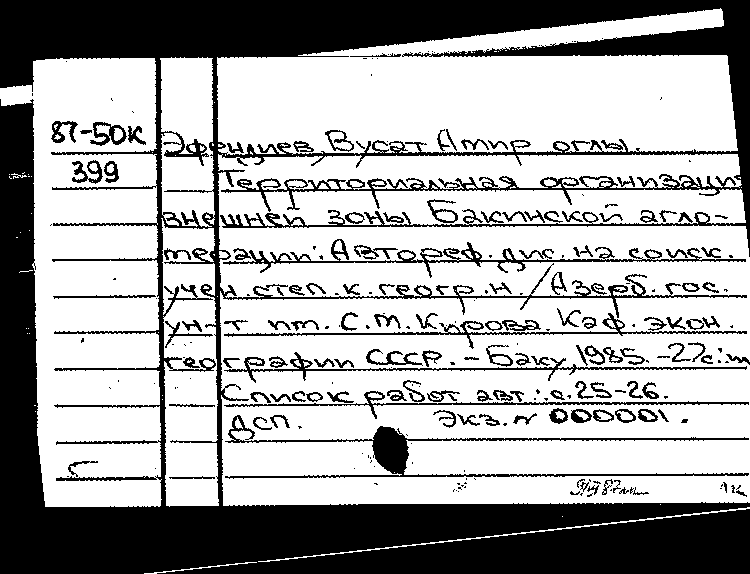 87-50К
399
Эфендиев, Вусат Амир оглы.
Территориальная организаци
внешней зоны Бакинской агло-
мерации: Автореф. дис. на соиск.
учен. степ. к. геогр. н. / Азерб. гос.
ун-т им. С.М. Кирова. Каф. экон.
географии СССР. - Баку, 1985. - 27с.:
Список работ авт.: с. 25-26.
ДСП. Экз. № 000001.